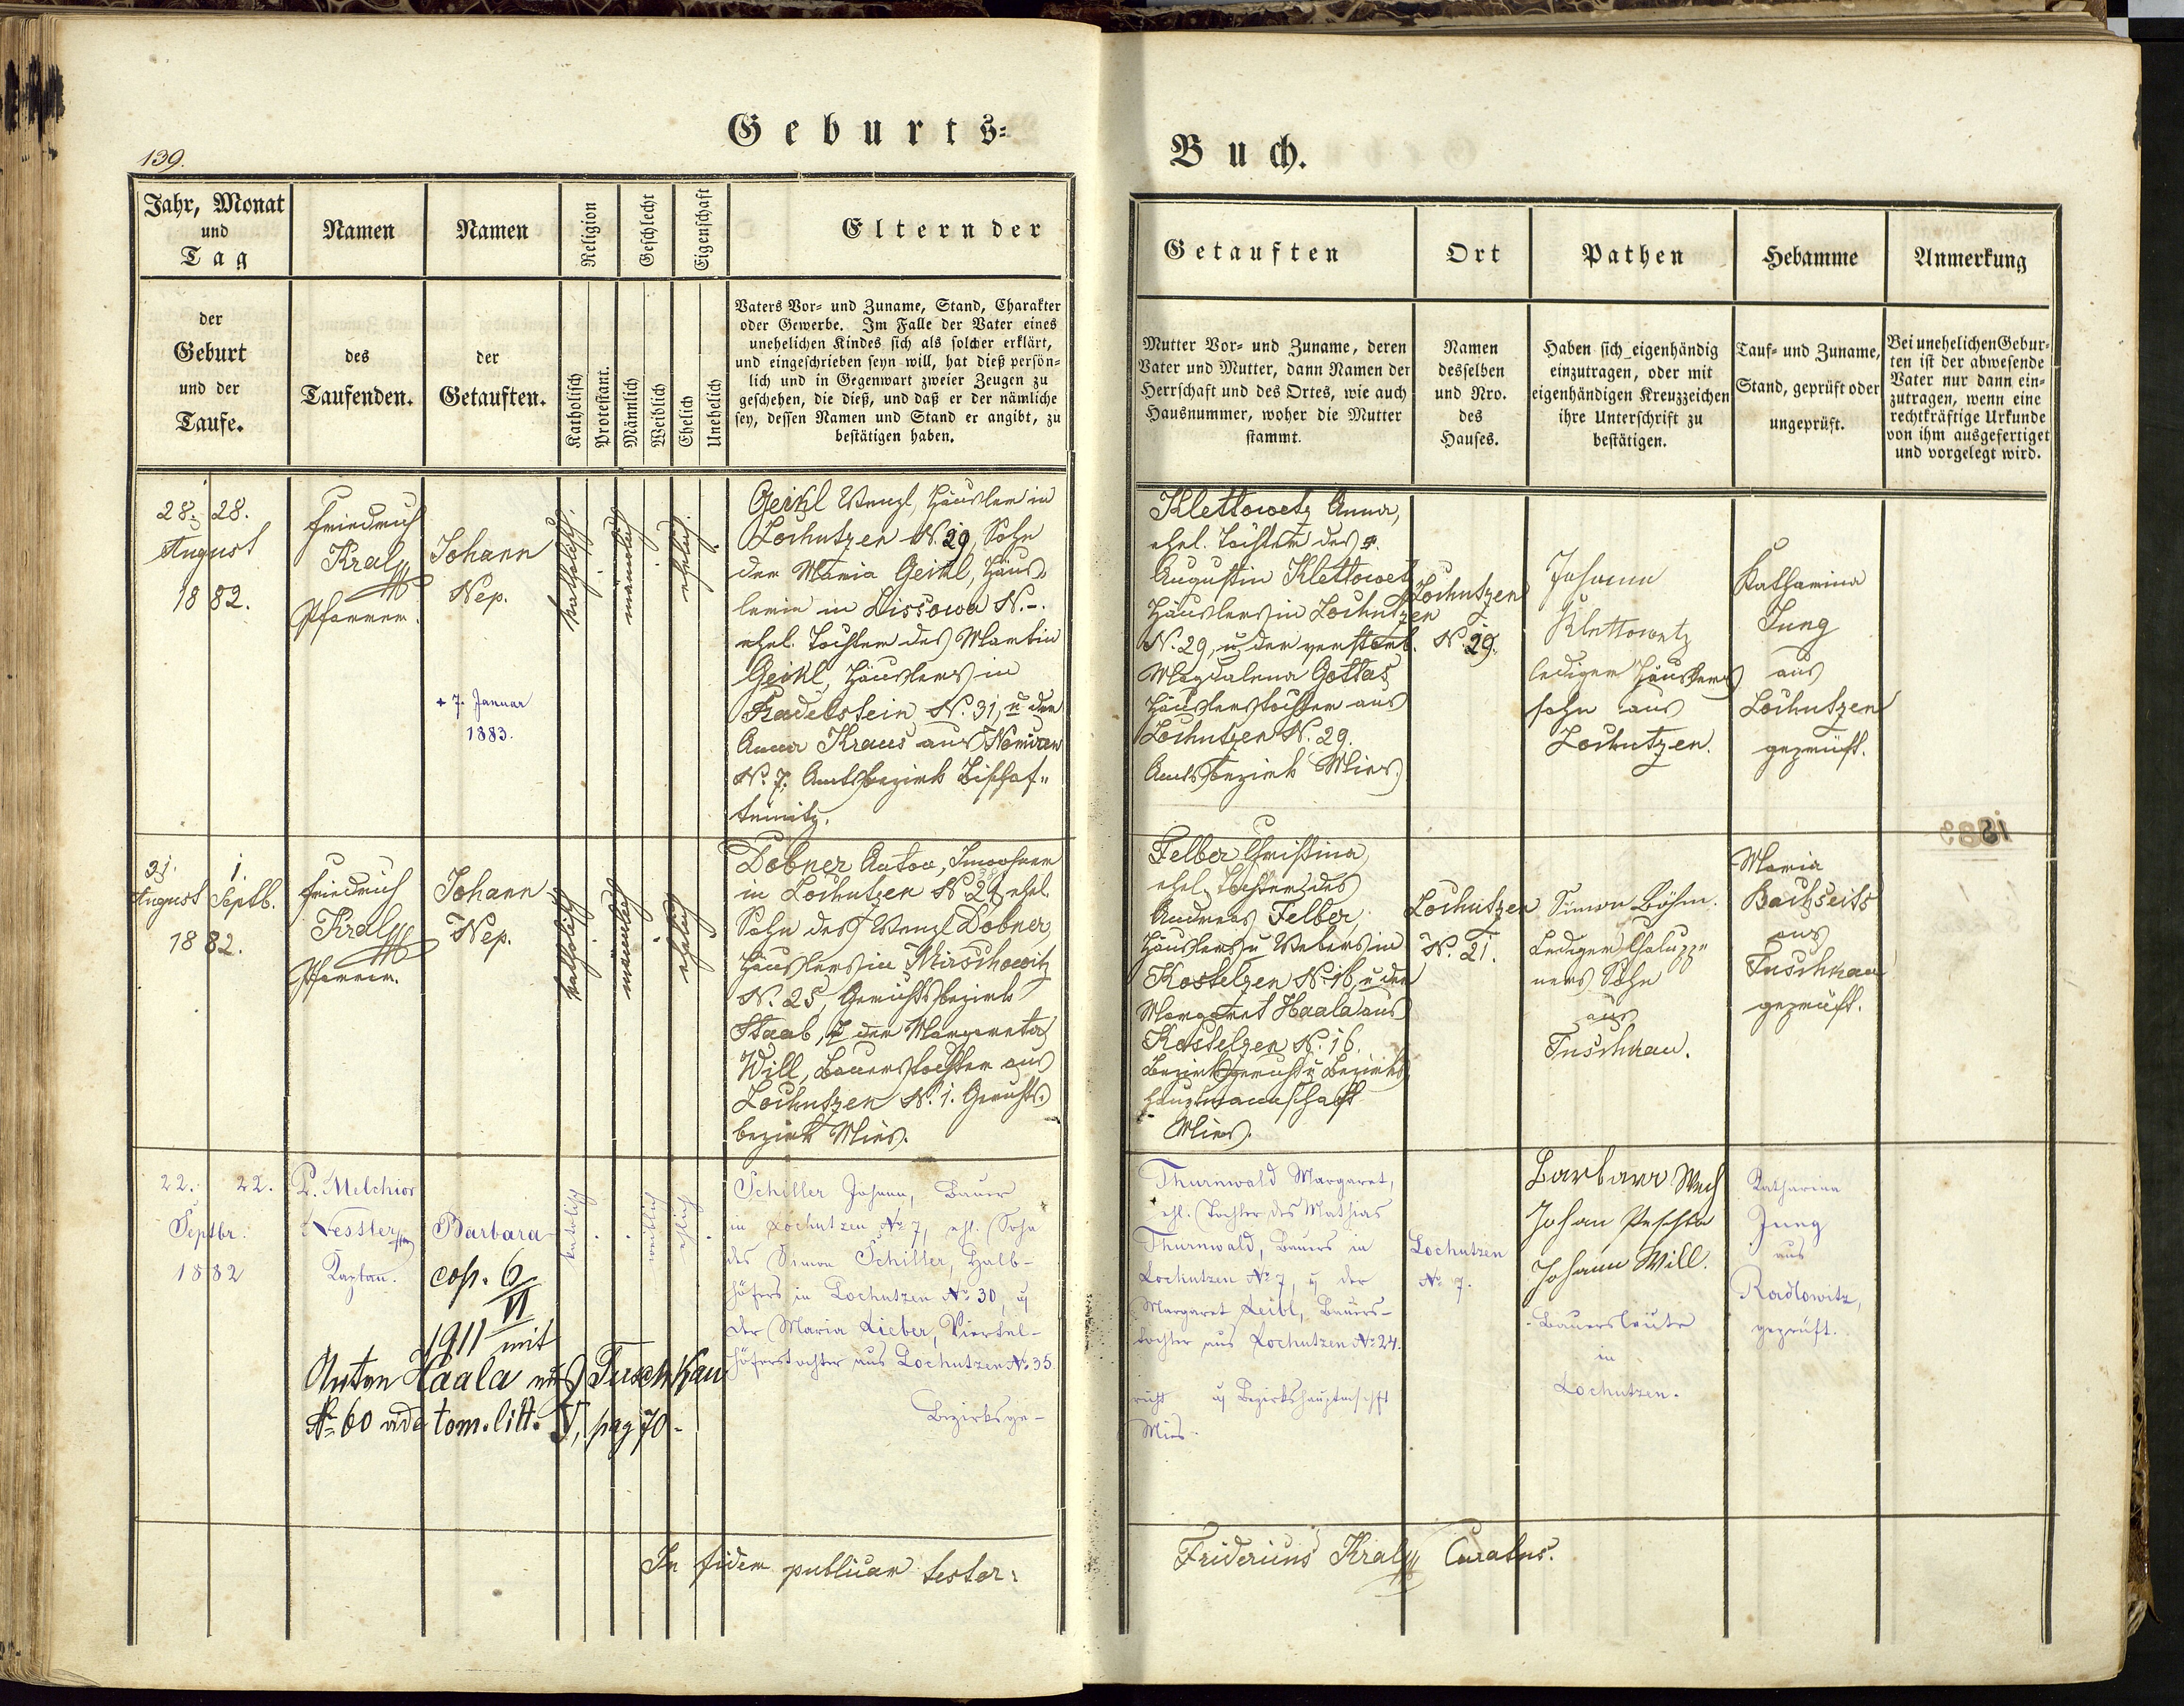 Geburts=
139.
Jahr, Monat
und
Tag
Namen
Namen
Religion
Geschlecht
Eigenschaft
Eltern der
der
Geburt
und der
Taufe.
des
Taufenden.
der
Getauften.
Katholisch
Protestant.
Männlich
Weiblich
Ehelich
Unehelich
Vaters Vor- und Zuname, Stand, Charakter
oder Gewerbe. Im Falle der Vater eines
unehelichen Kindes sich als solcher erklärt,
und eingeschrieben seyn will, hat dieß persön-
lich und in Gegenwart zweier Zeugen zu
geschehen, die dieß, und daß er der nämliche
sey, dessen Namen und Stand er angibt, zu
bestätigen haben.
28. 28.
August
1882.
Friedrich
Kral
Pfarrer.
Johann
Nep.
+ 7. Januar
1883.
katholisch.
männlich
ehelich.
Geikl Wenzl, Häusler in
Lochutzen N. 29, Sohn
der Maria Geikl, Häus-
lerin in Lissowa N. -.
ehel. Tochter des Martin
Geikl, Häuslers in
Radelstein N. 31, u der
Anna Kraus aus
N. 7. Amtsbezirk Bischof-
teinitz.
31. 1.
August Septb.
1882.
Friedrich
Kral
Pfarrer.
Johann
Nep.
katholisch
männlich
ehelich
Dobner Anton, Inwohner
in Lochutzen N 21 ehel.
Sohn des Wenzl Dobner,
Häuslers in Mirschowitz
N. 25, Gerichtsbezirk
Staab, u der Margareta
Will, Bauerstochter aus
Lochutzen N. 1. Gerichts-
bezirk Mies.
22. 22.
Septbr.
1882
P. Melchior
Nessler
Kaplan.
Barbara
katolisch
weiblich
ehlich
cop. 6/VI
1911 mit
Anton Haala aus Tuschkau
N. 60 vide tom. litt. V, pag 70.
Schiller Johann, Bauer
in Lochutzen No 7, ehl. Sohn
des Simon Schiller, Halb-
höfers in Lochutzen No 30, u
der Maria Lieber, Viertel-
höferstochter aus Lochutzen No 35.
Bezirksge-
In fidem publicam testor:
Buch.
Getauften
Ort
Pathen
Hebamme
Anmerkung
Mutter Vor- und Zuname, deren
Vater und Mutter, dann Namen der
Herrschaft und des Ortes, wie auch
Hausnummer, woher die Mutter
stammt.
Namen
desselben
und Nro.
des
Hauses.
Haben sich eigenhändig
einzutragen, oder mit
eigenhändigen Kreuzzeichen
ihre Unterschrift zu
bestätigen.
Tauf- und Zuname,
Stand, geprüft oder
ungeprüft.
Bei unehelichen Gebur-
ten ist der abwesende
Vater nur dann ein-
zutragen, wenn eine
rechtkräftige Urkunde
von ihm ausgefertiget
und vorgelegt wird.
Klettowetz Anna,
ehel. Tochter des
Augustin Klettowetz
Häuslers in Lochutzen
N. 29, u der verstorb.
Magdalena Gottas
Häuslerstochter aus
Lochutzen N. 29.
Amtsbezirk Mies.
Lochutzen
N. 29.
Johann
Klettowetz
lediger Häuslers
sohn aus
Lochutzen.
Katharina
Jung
aus
Lochutzen
geprüft.
Felber Christina,
ehel. Tochter des
Andreas Felber
Häuslers u Webers in
Kostelzen N. 16, u der
Margaret Haala aus
Kostelzen N. 16.
Bezirksgericht u Bezirks
hauptmannschaft
Mies.
Lochutzen
N. 21.
Simon Böhm.
Lediger Chaluppe
ners Sohn
aus
Tuschkau.
Maria
Bachseits
aus
Tuschkau
geprüft.
Thurnwald Margaret,
ehl. Tochter des Mathias
Thurnwald, Bauers in
Lochutzen No 7, u der
Margaret Leibl, Bauers-
tochter aus Lochutzen No 24.
richt u Bezirkshauptmschft
Mies.
Lochutzen
No 7.
Barbara
Johan Peschta
Johann Will.
Bauersleute
in
Lochutzen.
Katharina
Jung
aus
Radlowitz,
geprüft.
Fridericus Kral Curatus.